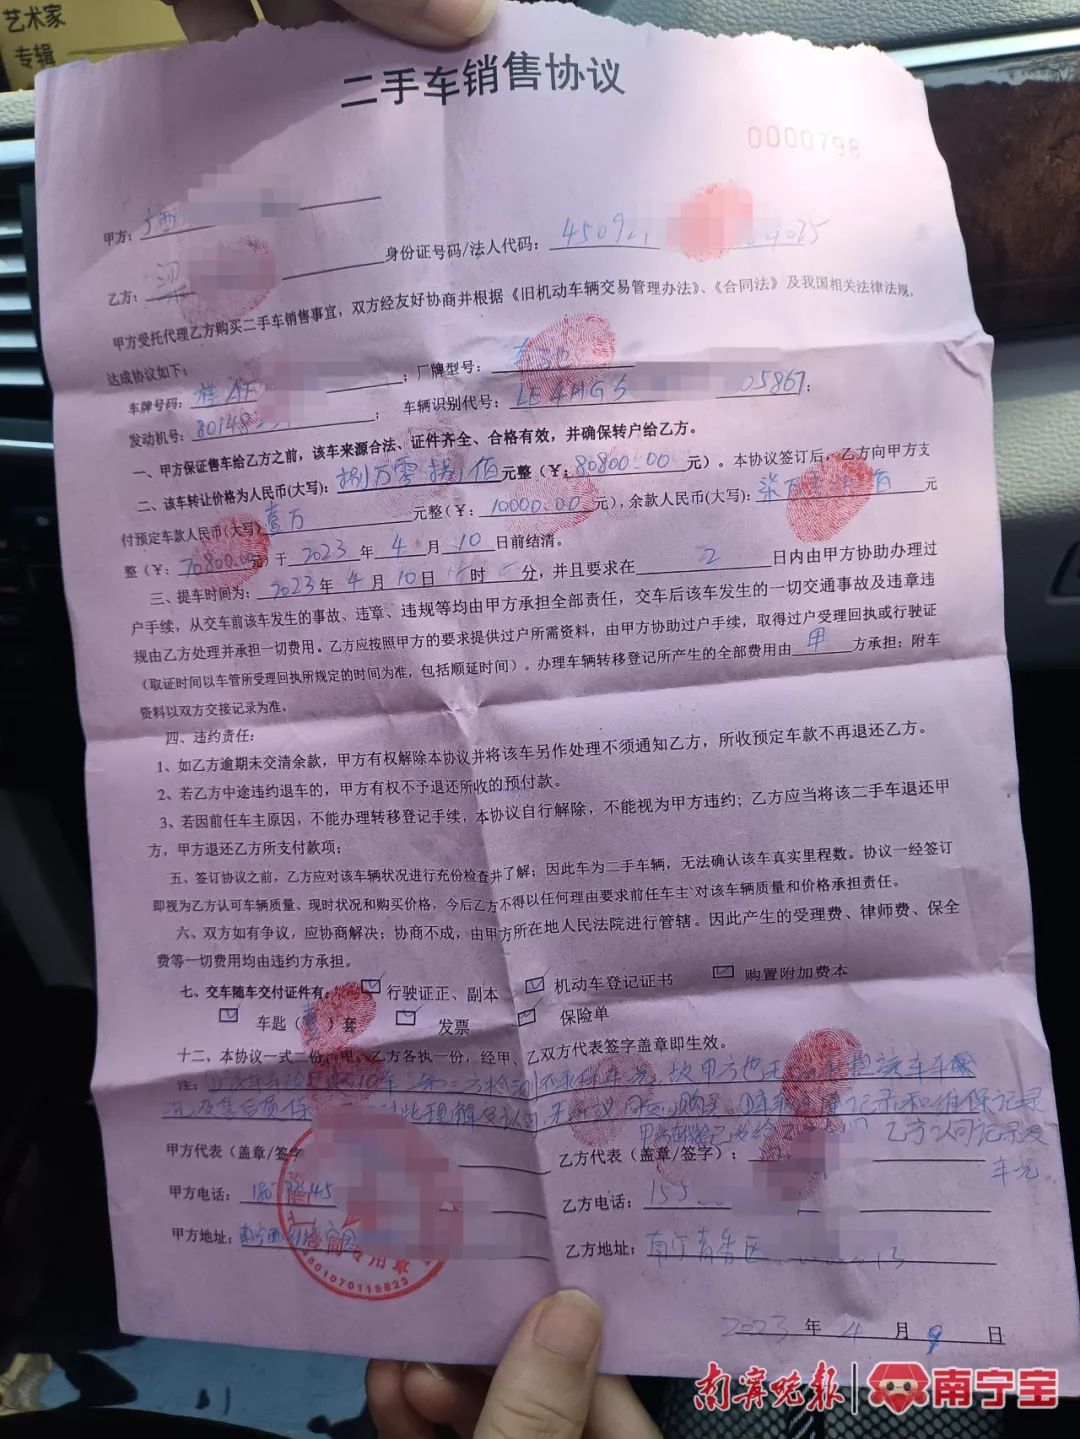 艺术家
专辑
二手车销售协议
0000798
甲方：广西
身份证号码/法人代码：450921 4025
乙方：梁
甲方受托代理乙方购买二手车销售事宜，双方经友好协商并根据《旧机动车辆交易管理办法》、《合同法》及我国相关法律法规，
达成协议如下：
车牌号码：桂A ；厂牌型号：
发动机号：80148 ； 车辆识别代号： 05867；
一、甲方保证售车给乙方之前，该车来源合法、证件齐全、合格有效，并确保转户给乙方。
二、该车转让价格为人民币(大写)：捌万零捌佰元整（￥：80800.00元）。本协议签订后，乙方向甲方支
付预定车款人民币(大写)壹万元整（￥：10000.00元），余款人民币(大写)：柒万 佰元
整（￥：70800.00元）于2023年4月10日前结清。
三、提车时间为：2023年4月10日 时 分，并且要求在2日内由甲方协助办理过
户手续，从交车前该车发生的事故、违章、违规等均由甲方承担全部责任，交车后该车发生的一切交通事故及违章违
规由乙方处理并承担一切费用。乙方应按照甲方的要求提供过户所需资料，由甲方协助过户手续，取得过户受理回执或行驶证
（取证时间以车管所受理回执所规定的时间为准，包括顺延时间）。办理车辆转移登记所产生的全部费用由甲方承担；附车
资料以双方交接记录为准。
四、违约责任：
1、如乙方逾期未交清余款，甲方有权解除本协议并将该车另作处理不须通知乙方，所收预定车款不再退还乙方。
2、若乙方中途违约退车的，甲方有权不予退还所收的预付款。
3、若因前任车主原因，不能办理转移登记手续，本协议自行解除，不能视为甲方违约；乙方应当将该二手车退还甲
方，甲方退还乙方所支付款项；
五、签订协议之前，乙方应对该车辆状况进行充份检查并了解；因此车为二手车辆，无法确认该车真实里程数。协议一经签订
即视为乙方认可车辆质量、现时状况和购买价格，今后乙方不得以任何理由要求前任车主对该车辆质量和价格承担责任。
六、双方如有争议，应协商解决；协商不成，由甲方所在地人民法院进行管辖。因此产生的受理费、律师费、保全
费等一切费用均由违约方承担。
七、交车随车交付证件有： 行驶证正、副本 机动车登记证书 购置附加费本
车匙（壹）套 发票 保险单
十二、本协议一式二份，甲、乙方各执一份，经甲、乙双方代表签字盖章即生效。
注：①该车车龄 10年，第三方检测不承保车况，故甲方也 车车
况及售后质保 对此理解及认同，无 议 购买。 记录和维保记录
甲方 已 乙方认同记录及
车况。
甲方代表（盖章/签字
乙方代表（盖章/签字）：
甲方电话： 45
乙方电话：155
甲方地址：南宁西
乙方地址：南宁青秀区 13
合同专用章
4501070118823
2023年4月9日
南宁晚报 南宁宝